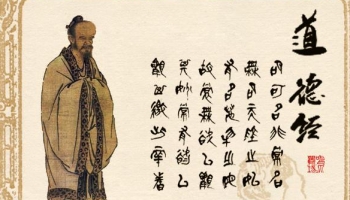 道德经
名可名非常名
無名天地之始
有名萬物之母
故常無欲以觀
其妙常有欲以
觀其徼此兩者